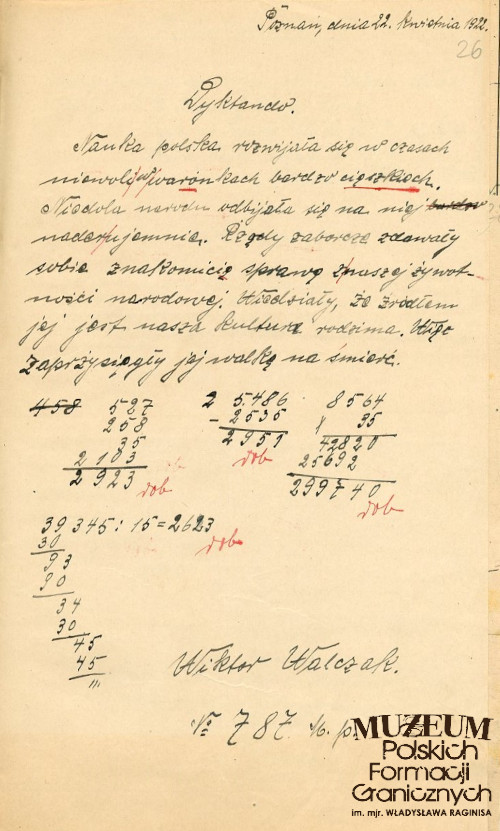 Poznań, dnia 22. kwietnia 1922.
26
Dyktando.
Nauka polska rozwijała się w czasach
niewoli w waronkach bardzo cięszkich.
Niedola narodu odbijała się na niej bardzo
nader ujemnie. Rządy zaborcze zdawały
sobie znakomicie sprawę z naszej żywot-
ności narodowej. Wiedziały, że źródłem
jej jest nasza kultura rodzima. Więc
zaprzysięgły jej walkę na śmierć.
458 527
258
35
2103
2923
dob
2 5.486
- 2535
2951
dob
8564
x 35
42820
25692
299740
dob
39345 : 15 = 2623
dob
30
93
90
34
30
45
45
"'
Wiktor Walczak.
No 787
MUZEUM
Polskich
Formacji
Granicznych
im. mjr. WŁADYSŁAWA RAGINISA